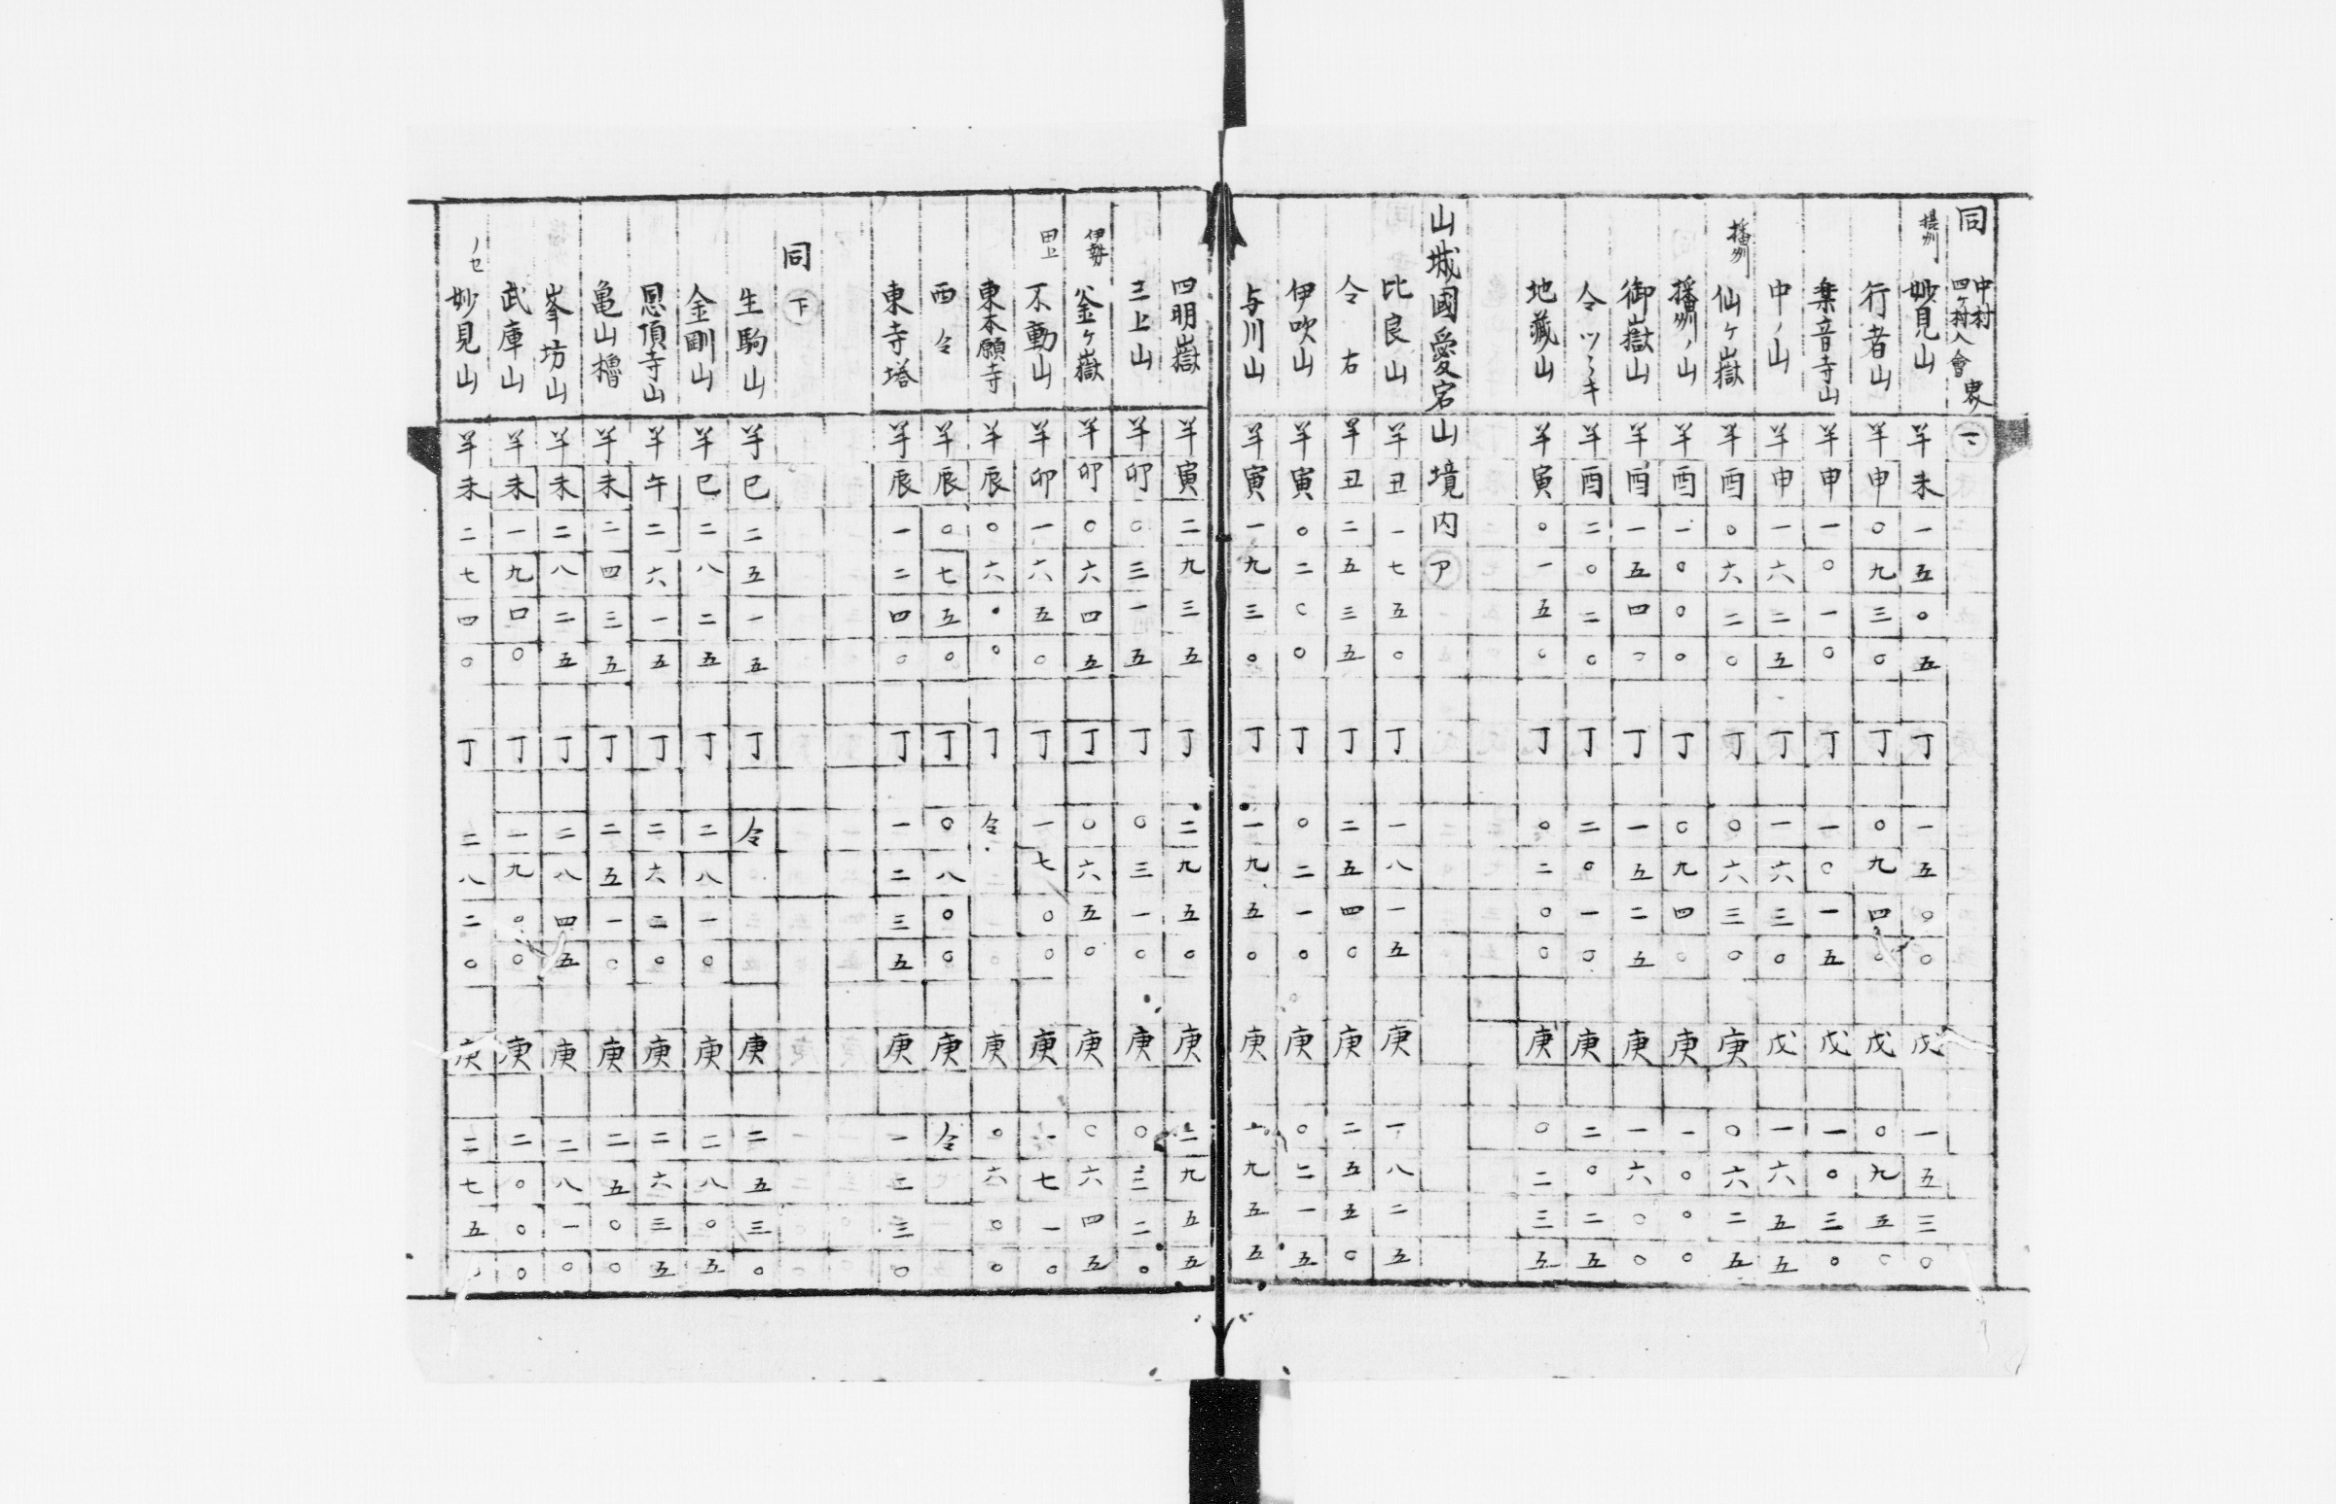 同 中村 四ヶ村入會 界
摂州 妙見山 羊未一五〇五 丁一五〇〇 戊一五三〇
行者山 羊申〇九三〇 丁〇九四〇 戊〇九五〇
棄音寺山 羊申一〇一〇 丁一〇一五 戊一〇三〇
中ノ山 羊申一六二五 丁一六三〇 戊一六五五
播州 仙ヶ嶽 羊酉〇六二〇 丁〇六三〇 庚〇六二五
播州ノ山 羊酉一〇〇〇 丁〇九四〇 庚一〇〇〇
御嶽山 羊酉一五四〇 丁一五二五 庚一六〇〇
仝ツヽキ 羊酉二〇二〇 丁二〇一〇 庚二〇二五
地藏山 羊寅〇一五〇 丁〇二〇〇 庚〇二三五
山城國愛宕山境内 ア
比良山 羊丑一七五〇 丁一八一五 庚一八二五
仝 右 羊丑二五三五 丁二五四〇 庚二五五〇
伊吹山 羊寅〇二〇〇 丁〇二一〇 庚〇二一五
与川山 羊寅一九三〇 丁一九五〇 庚一九五五
四明嶽 羊寅二九三五 丁二九五〇 庚二九五五
三上山 羊卯〇三一五 丁〇三一〇 庚〇三二〇
伊勢 釜ヶ嶽 羊卯〇六四五 丁〇六五〇 庚〇六四五
田上 不動山 羊卯一六五〇 丁一七〇〇 庚一七一〇
東本願寺 羊辰〇六〇〇 丁仝 庚〇六〇〇
西仝 羊辰〇七五〇 丁〇八〇〇 庚仝
東寺塔 羊辰一二四〇 丁一二三五 庚一二三〇
同 下
生駒山 羊巳二五一五 丁仝 庚二五三〇
金剛山 羊巳二八二五 丁二八一〇 庚二八〇五
恩頂寺山 羊午二六一五 丁二六二〇 庚二六三五
亀山櫓 羊未二四三五 丁二五一〇 庚二五〇〇
峯坊山 羊未二八二五 丁二八四五 庚二八一〇
武庫山 羊未一九四〇 丁一九〇〇 庚二〇〇〇
ノセ 妙見山 羊未二七四〇 丁二八二〇 庚二七五〇